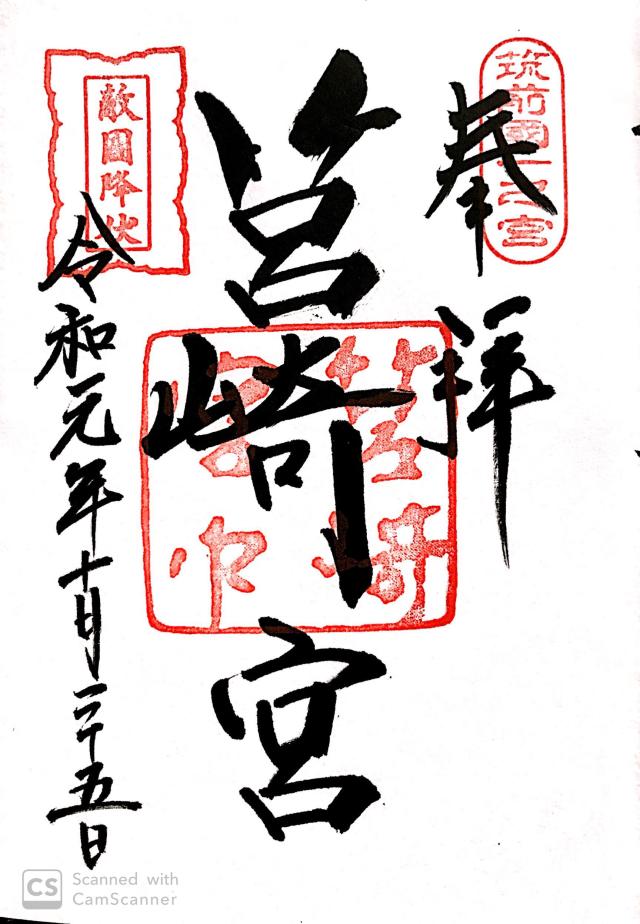 筑前國一之宮
奉拝
筥崎宮
筥崎宮印
敵國降伏
令和元年十月二十五日
CS Scanned with
CamScanner